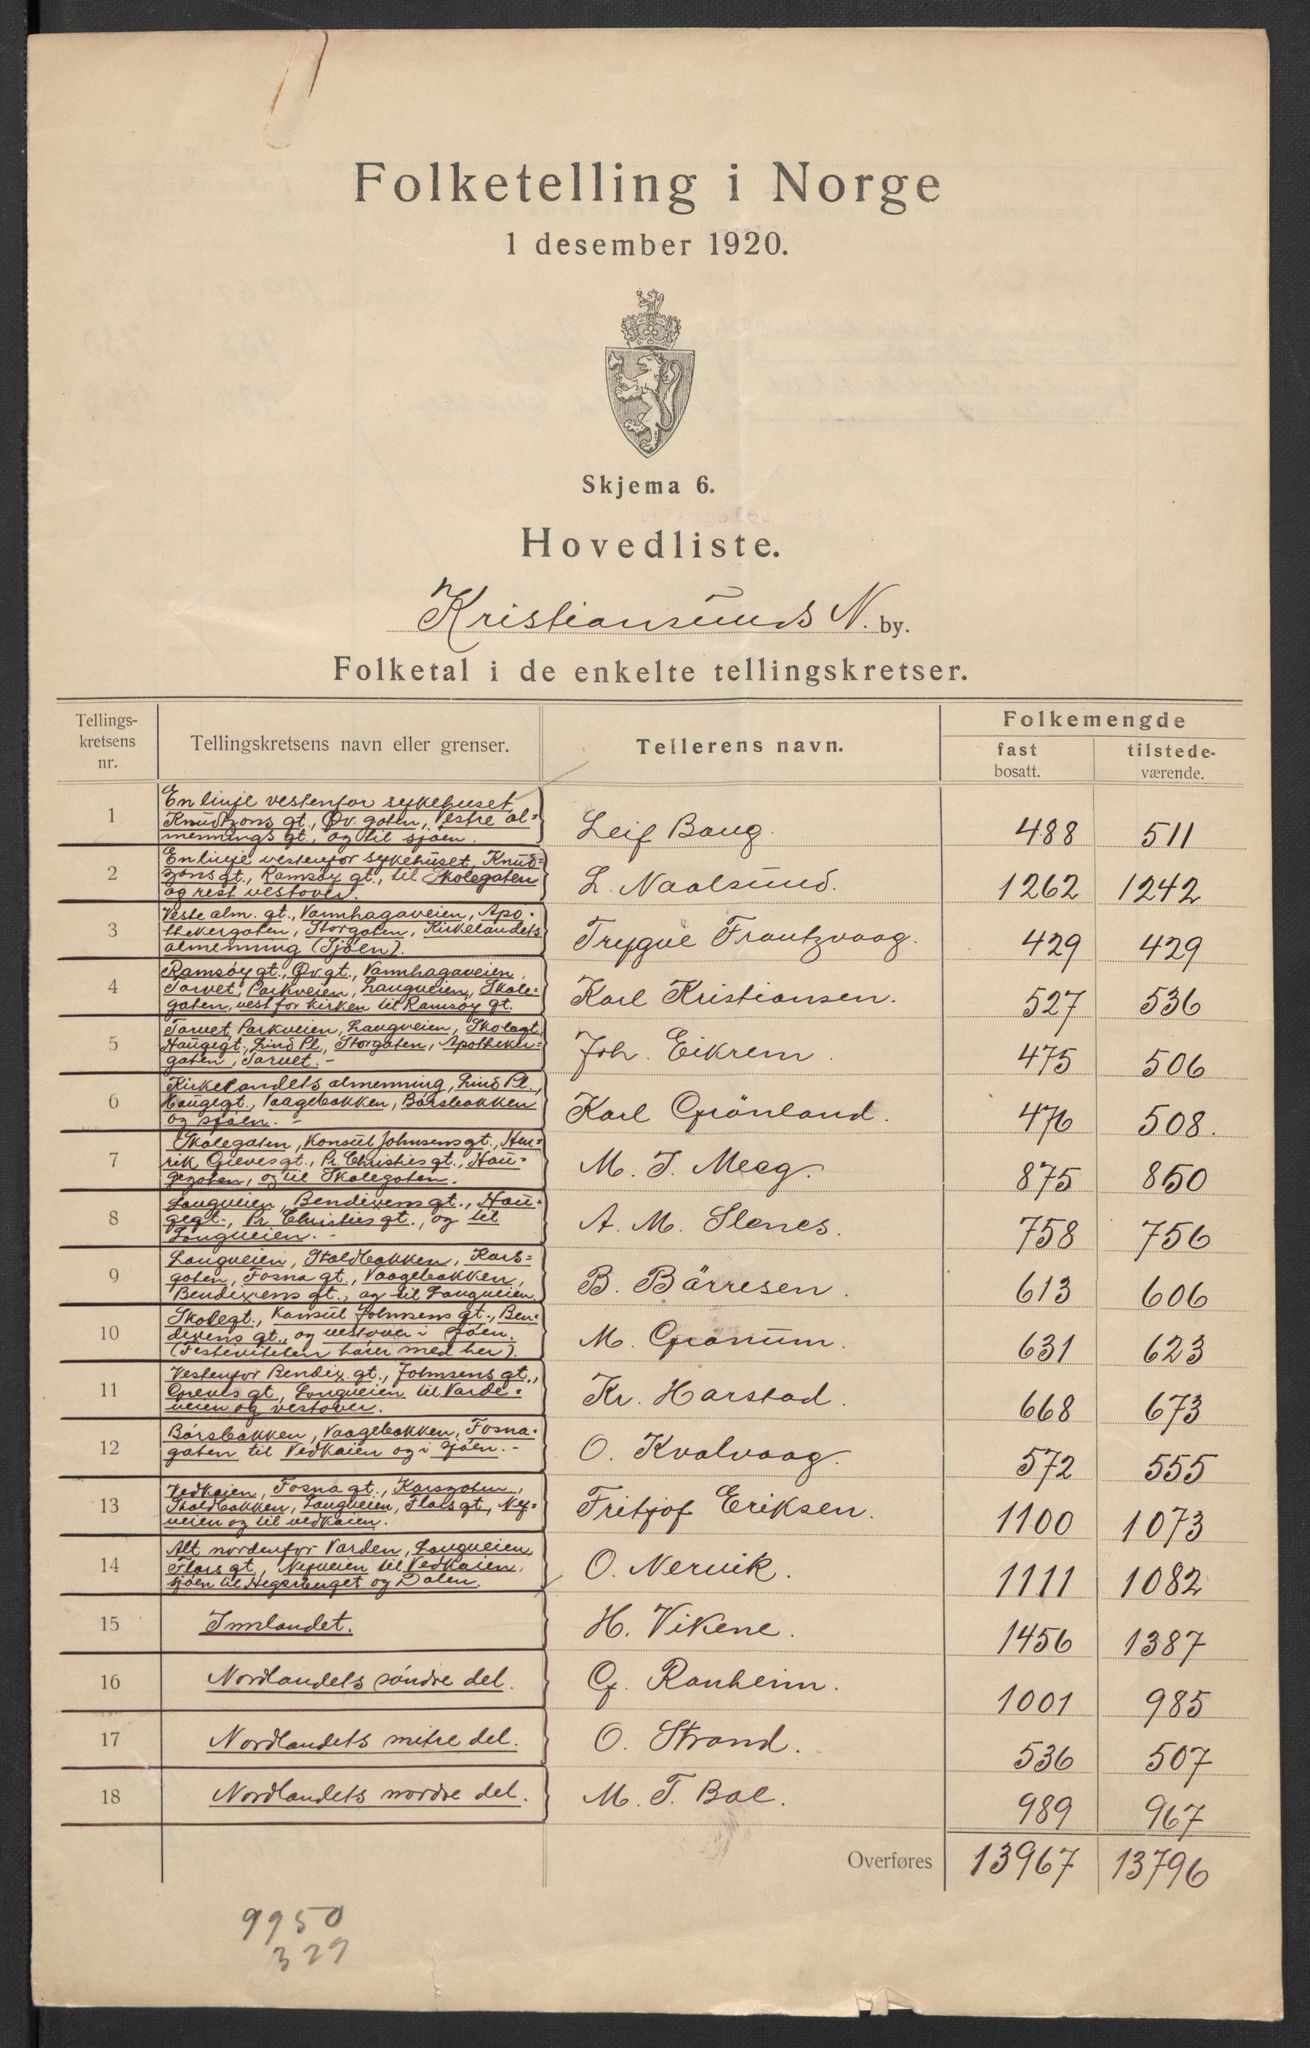 Folketelling i Norge
1 desember 1920.
Skjema 6.
Hovedliste.
Kristiansunds N. by.
Folketal i de enkelte tellingskretser.
Tellings-
kretsens
nr.
Tellingskretsens navn eller grenser.
Tellerens navn.
Folkemengde
fast
bosatt.
tilstede-
værende.
1
En linje vestenfor sykehuset
Knudtzons gt., Øv. gaten, Vestre al-
mennings gt., og til sjøen.
Leif Baug.
488
511
2
En linje vestenfor sykehuset, Knud-
zons gt., Ramsøy gt., til Skolegaten
og rest vestover.
L. Naalsund.
1262
1242
3
Veste alm. gt., Vannhagaveien, Apo-
thekergaten, Storgaten, Kirkelandets
almenning (Sjøen).
Trygve Frantzvaag.
429
429
4
Ramsøy gt., Øv. gt., Vannhagaveien,
Torvet, Parkveien, Langveien, Skole-
gaten, vest for kirken til Ramsøy gt.
Karl Kristiansen.
527
536
5
Torvet, Parkveien, Langveien, Skolegt.
Haugegt., Lind Pl., Storgaten, Apotheker-
gaten, Torvet. -
Joh. Eikrem.
475
506
6
Kirkelandets almenning, Lind Pl.,
Haugegt., Vaagebakken, Børsbakken
og sjøen. -
Karl Grönland.
476
508.
7
Skolegaten, Konsul Johnsens gt., Hen-
rik Grevesgt., Pr. Christies gt., Hau-
gegaten, og til Skolegaten.
M. J. Meeg.
875
850
8
Langveien, Bendixens gt., Hau-
gegt., Pr. Christies gt., og til
Langveien. -
A. M. Slenes.
758
756
9
Langveien, Skoldbakken, Kars-
gaten, Fosna gt., Vaagebakken,
Bendixens gt., og til Langveien.
B. Börresen.
613
606
10
Skolegt., Konsul Johnsens gt., Ben-
dixens gt., og vestover i sjøen.
(Festiviteten hører med her).
M. Granum.
631
623
11
Vestenfor Bendix. gt., Johnsens gt.,
Greves gt., Langveien til Varde-
veien og vestover.
Kr. Harstad.
668
673
12
Børsbakken, Vaagebakken, Fosna-
gaten til Vedkaien og i sjøen. -
O. Kvalvaag.
572
555
13
Vedkaien, Fosna gt., Karsgaten,
Skoldbakken, Langveien, Flors gt., Nej-
veien og til vedkaien.
Fritjof Eriksen.
1100
1073
14
Alt nordenfor Varden, Langveien,
Flors gt., Nejveien til Vedkaien,
sjøen til Hegerberget og Dalen.
O. Nervik.
1111
1082
15
Innlandet.
H. Vikene.
1456
1387
16
Nordlandets söndre del.
G. Ranheim.
1001
985
17
Nordlandets mitre del.
O. Strand.
536
507
18
Nordlandets nordre del.
M. T. Bae.
989
967
Overføres
13967
13796
9950
329